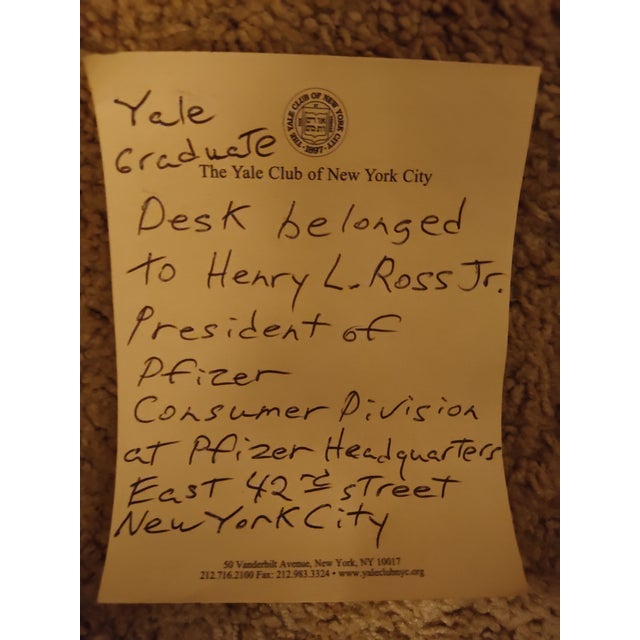 Yale
Graduate
THE YALE CLUB OF NEW YORK CITY
·1897·
The Yale Club of New York City
Desk belonged
to Henry L. Ross Jr.
President of
Pfizer
Consumer Division
at Pfizer Headquarters
East 42nd street
New York City
50 Vanderbilt Avenue, New York, NY 10017
212.716.2100 Fax: 212.983.3324 • www.yaleclubnyc.org